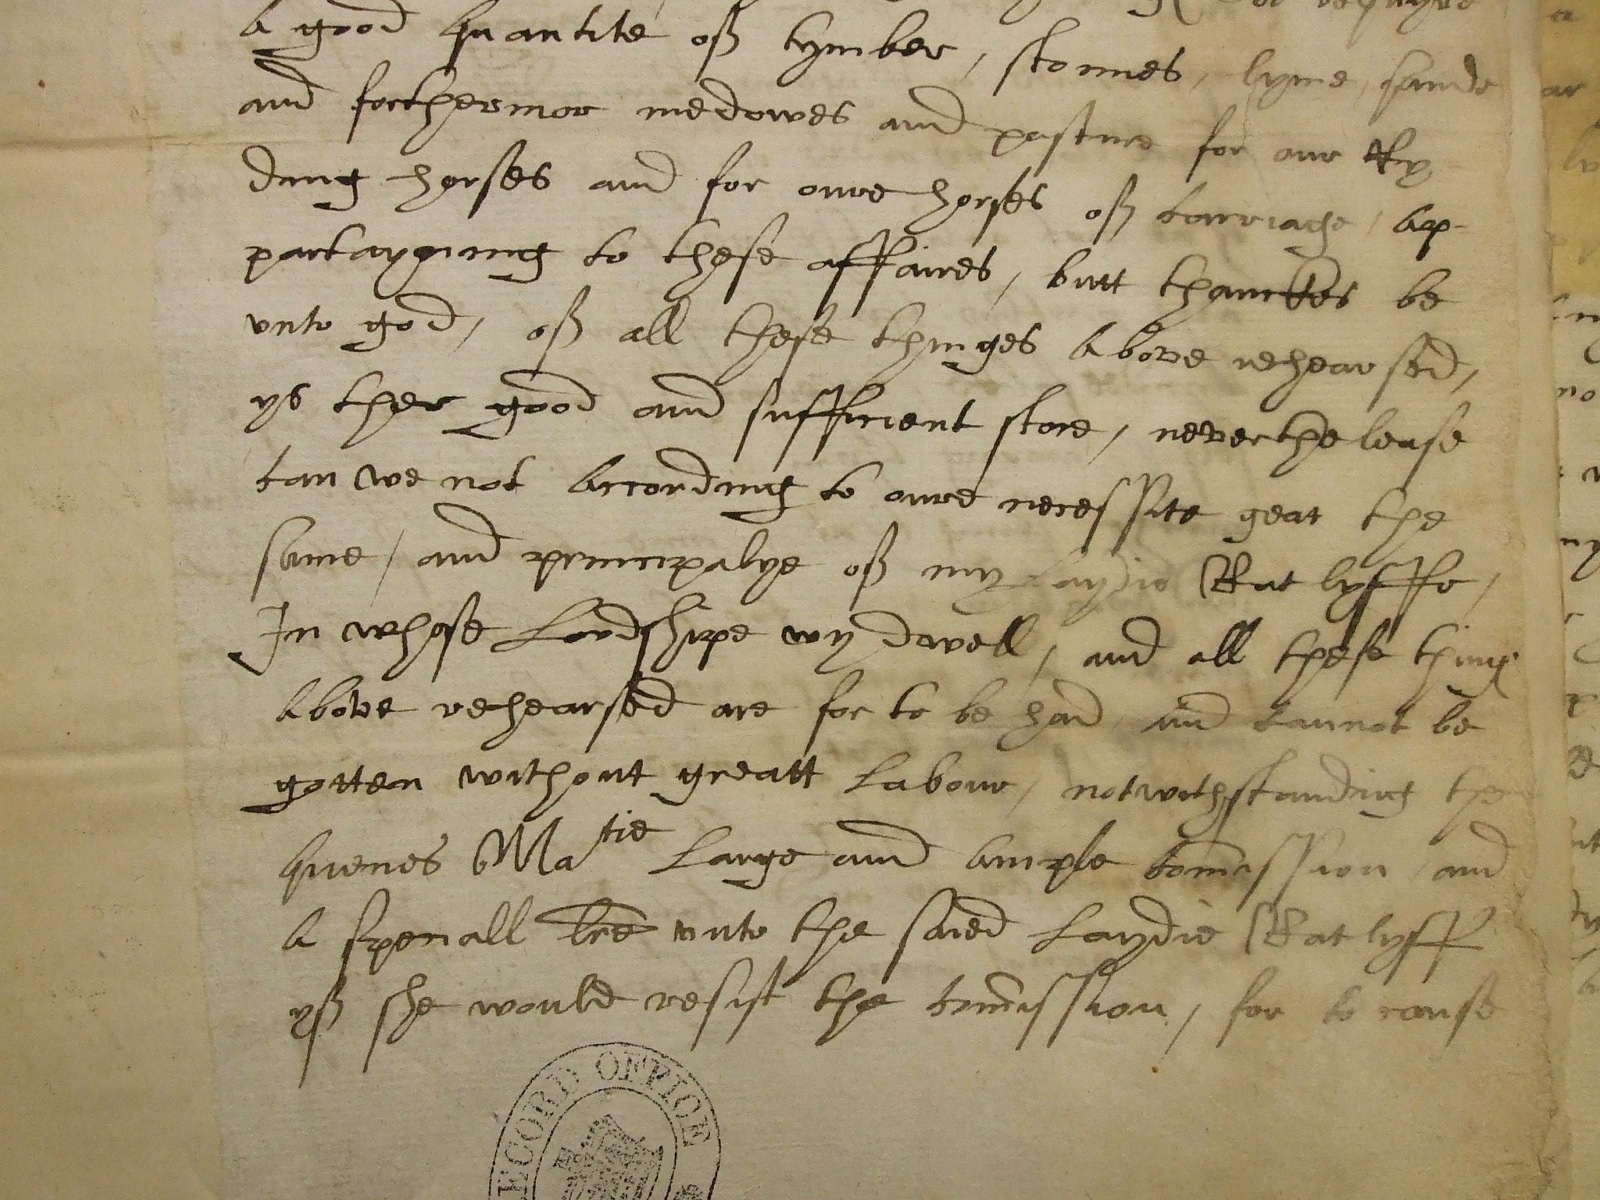 a good quantite off tymber, stonnes, lyme, sande
and forthermor medowes and pasture for our Ry
ding horses and for owre horses off carriage, ap-
partayning to these affaires, butt thanckes be
vnto god, off all these thinges above rehearsed,
ys ther good and sufficient store, neverthelease
can we not according to owre necessite geat the
same, and principalye off my Laydie Ratlyffe,
In whose Lordshipe wy dwell, and all these thinges
above rehearsed are for to be had and cannot be
gotten without greatt Labour, notwithstanding the
quenes Matie Large and ample comission and
a speciall lre vnto the saied Laydie Ratlyff
yff she would resist the comission, for to cause
RECORD OFFICE